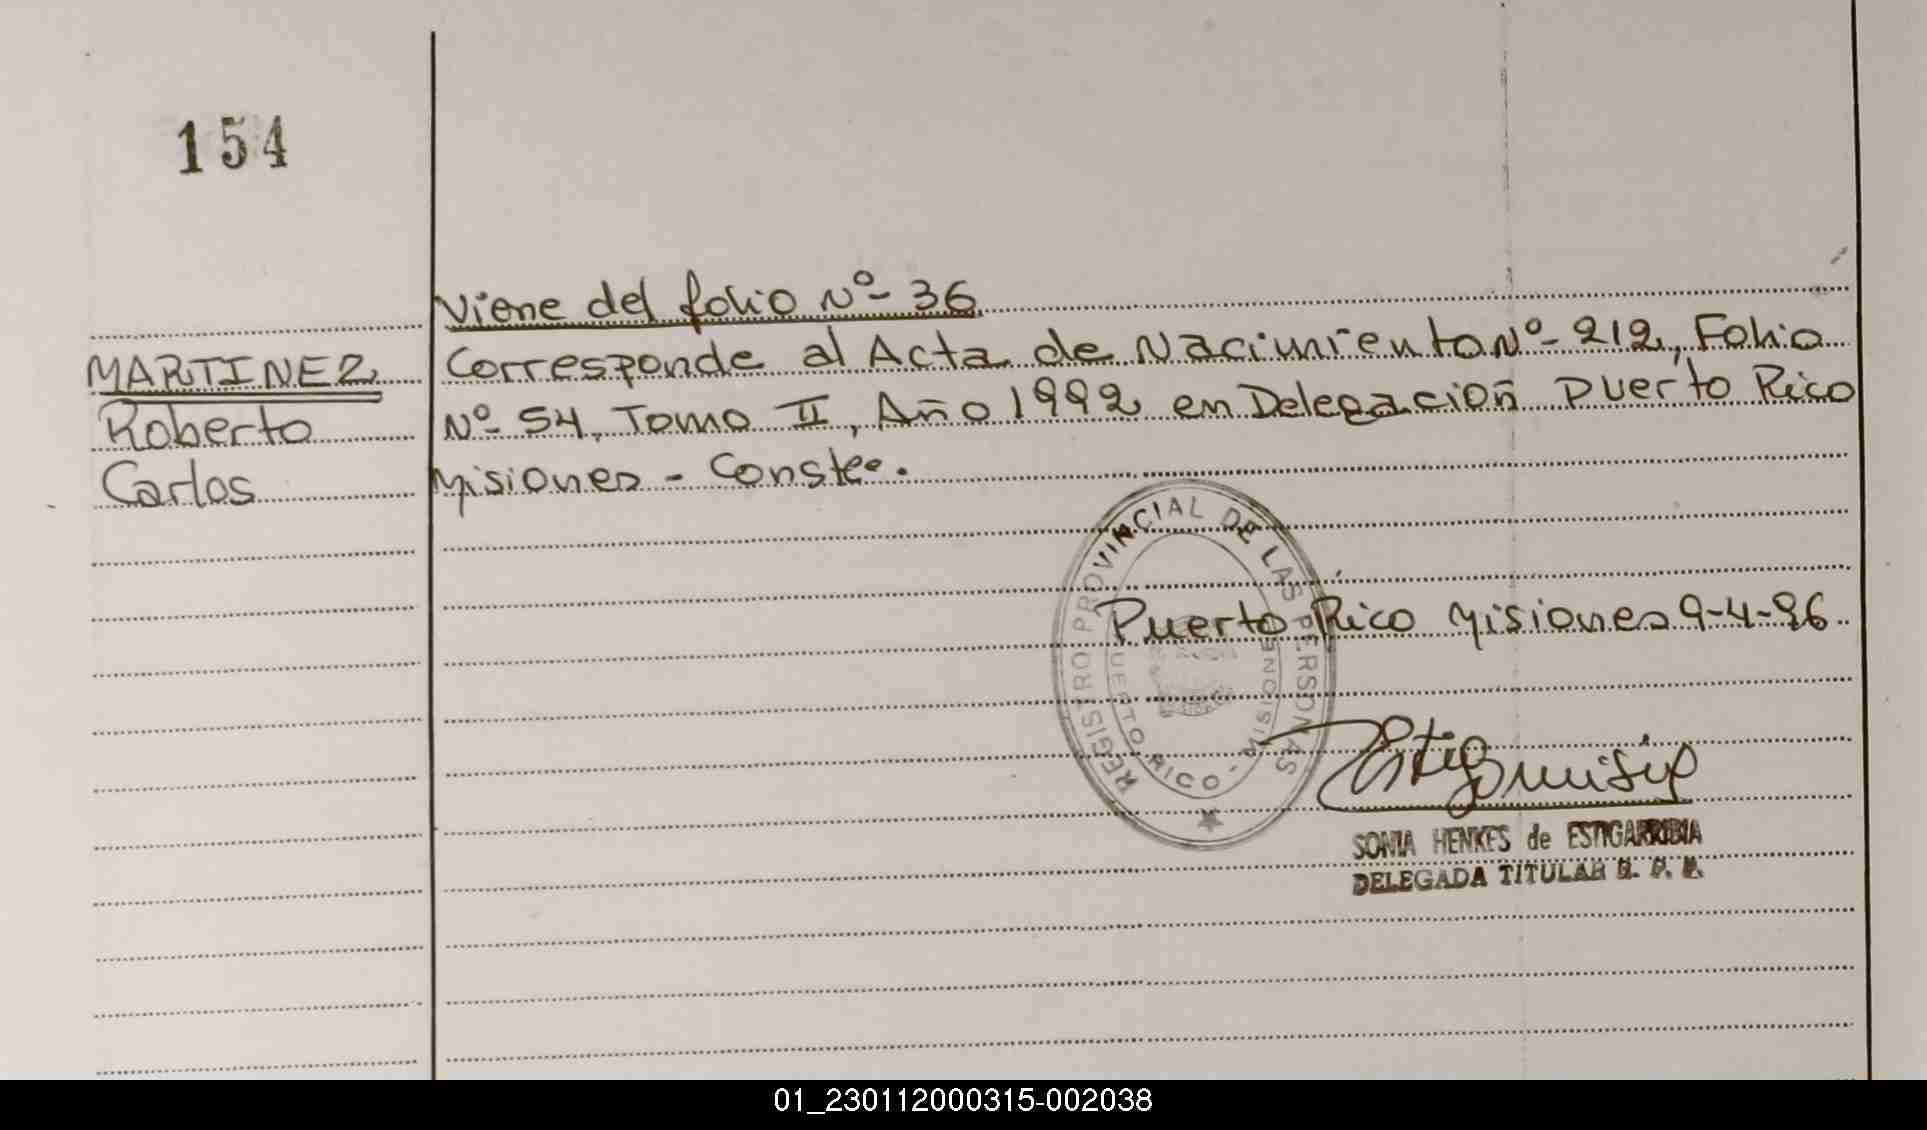 154
Viene del folio Nº- 36
MARTINEZ
Roberto
Carlos
Corresponde al Acta de Nacimiento Nº- 212, Folio
Nº- 54, Tomo II, Año 1992 en Delegación Puerto Rico
Misiones - Conste.
REGISTRO PROVINCIAL DE LAS PERSONAS
PUERTO RICO - MISIONES
Puerto Rico Misiones 9-4-96.
SONIA HENKES de ESTIGARRIBIA
DELEGADA TITULAR R. P. P.
01_230112000315-002038